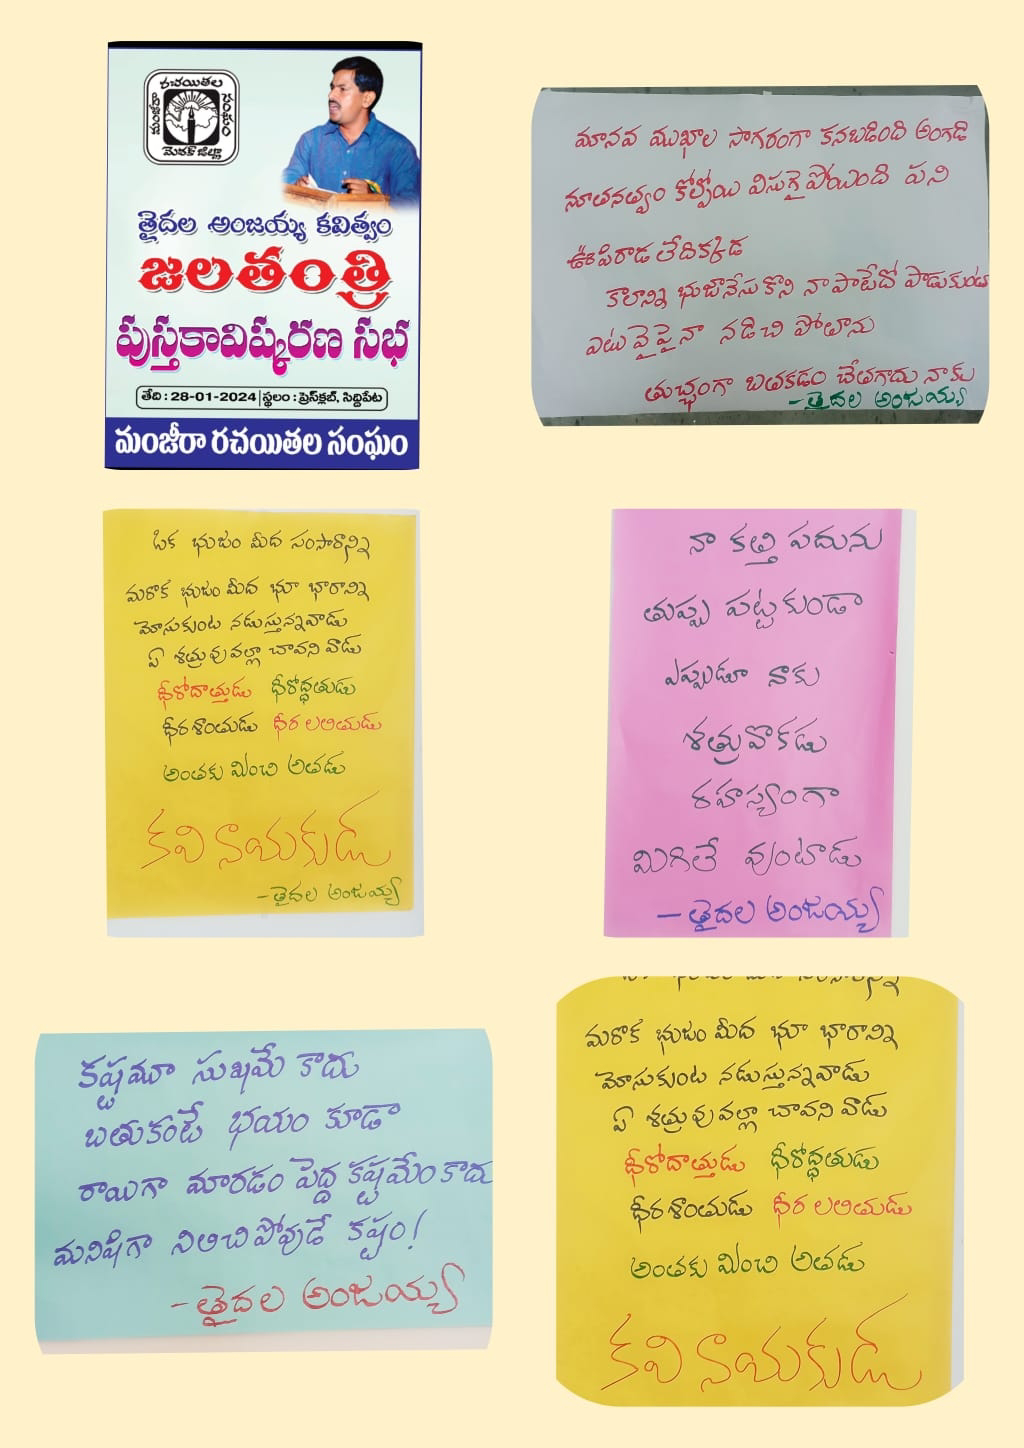 రచయితల
మంజీరా
సంఘం
మెదక్ జిల్లా
తైదల అంజయ్య కవిత్వం
జలతంత్రి
పుస్తకావిష్కరణ సభ
తేది : 28-01-2024 స్థలం : ప్రెస్‌క్లబ్, సిద్దిపేట
మంజీరా రచయితల సంఘం
మానవ ముఖాల సాగరంగా కనబడింది అంగడి
నూతనత్వం కోల్పోయి విసుగై పోయింది పని
ఊపిరాడ లేదిక్కడ
కాలాన్ని భుజానేసుకొని నా పాటేదో పాడుకుంటూ
ఎటు వైపైనా నడిచి పోతాను
తుచ్ఛంగా బతకడం చేతగాదు నాకు
- తైదల అంజయ్య
ఒక భుజం మీద సంసారాన్ని
మరొక భుజం మీద భూ భారాన్ని
మోసుకుంట నడుస్తున్నవాడు
ఏ శత్రువు వల్లా చావని వాడు
ధీరోదాత్తుడు ధీరోద్ధతుడు
ధీర శాంతుడు ధీర లలితుడు
అంతకు మించి అతడు
కవి నాయకుడు
- తైదల అంజయ్య
నా కత్తి పదును
తుప్పు పట్టకుండా
ఎప్పుడూ నాకు
శత్రువొకడు
రహస్యంగా
మిగిలే వుంటాడు
- తైదల అంజయ్య
కష్టమూ సుఖమే కాదు
బతుకంటే భయం కూడా
రాయిగా మారడం పెద్ద కష్టమేం కాదు
మనిషిగా నిలిచి పోవుడే కష్టం!
- తైదల అంజయ్య
మరొక భుజం మీద భూ భారాన్ని
మోసుకుంట నడుస్తున్నవాడు
ఏ శత్రువు వల్లా చావని వాడు
ధీరోదాత్తుడు ధీరోద్ధతుడు
ధీర శాంతుడు ధీర లలితుడు
అంతకు మించి అతడు
కవి నాయకుడు